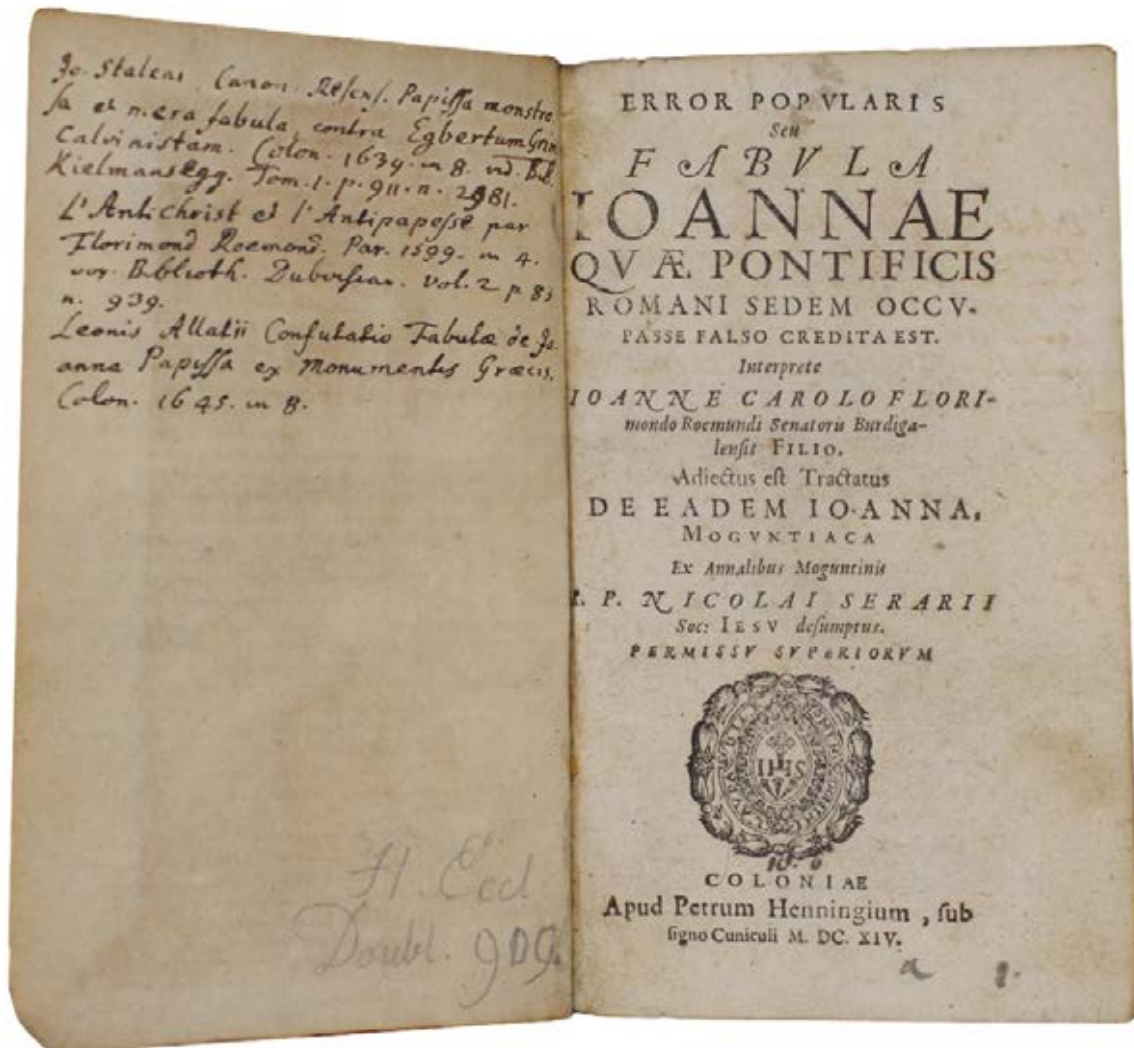 Jo. Staleni Canon. Resens. Papissa monstro
sa et mera fabula, contra Egbertum Grim
Calvinistam. Colon. 1639. in 8. vid. Bibl.
Kielmansegg. Tom. 1. p. 911. n. 2981.
L'Antichrist et l'Antipapesse par
Florimond Roemond. Par. 1599. in 4.
Biblioth. Duboisian. vol. 2 p 83
n. 939.
Leonis Allatii Confutatio Fabulæ de Jo-
anna Papissa ex Monumentis Græcis.
Colon. 1645. in 8.
H. Eccl
Doubl. 909.
ERROR POPVLARIS
Seu
FABVLA
IOANNAE
QVÆ PONTIFICIS
ROMANI SEDEM OCCV-
PASSE FALSO CREDITA EST.
Interprete
IOANNE CAROLO FLORI-
mondo Roemundi Senatoris Burdiga-
lensis FILIO.
Adiectus est Tractatus
DE EADEM IOANNA,
MOGVNTIACA
Ex Annalibus Moguntinis
R. P. NICOLAI SERARII
Soc: IESV desumptus.
PERMISSV SVPERIORVM
IHS
COLONIAE
Apud Petrum Henningium, sub
signo Cuniculi M. DC. XIV.